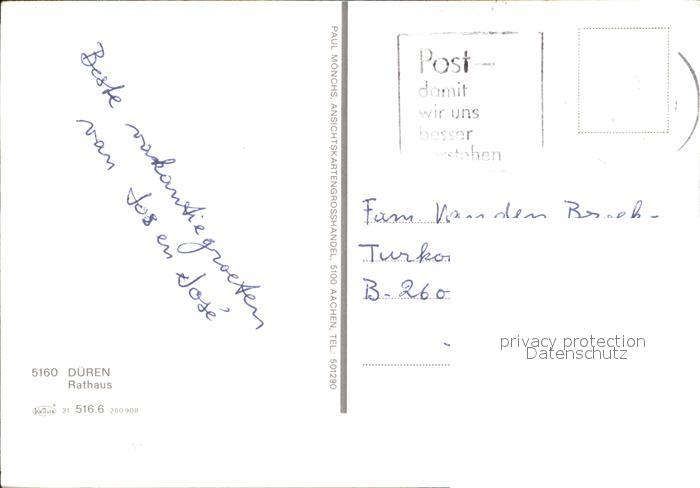 Beste vakantiegroeten
van Jos en José
5160 DÜREN
Rathaus
21 516.6 260908
PAUL MÖNCHS, ANSICHTSKARTENGROSSHANDEL, 5100 AACHEN, TEL. 501290
Post –
damit
wir uns
besser
verstehen
Fam. Van den
Turko
B-260
privacy protection
Datenschutz